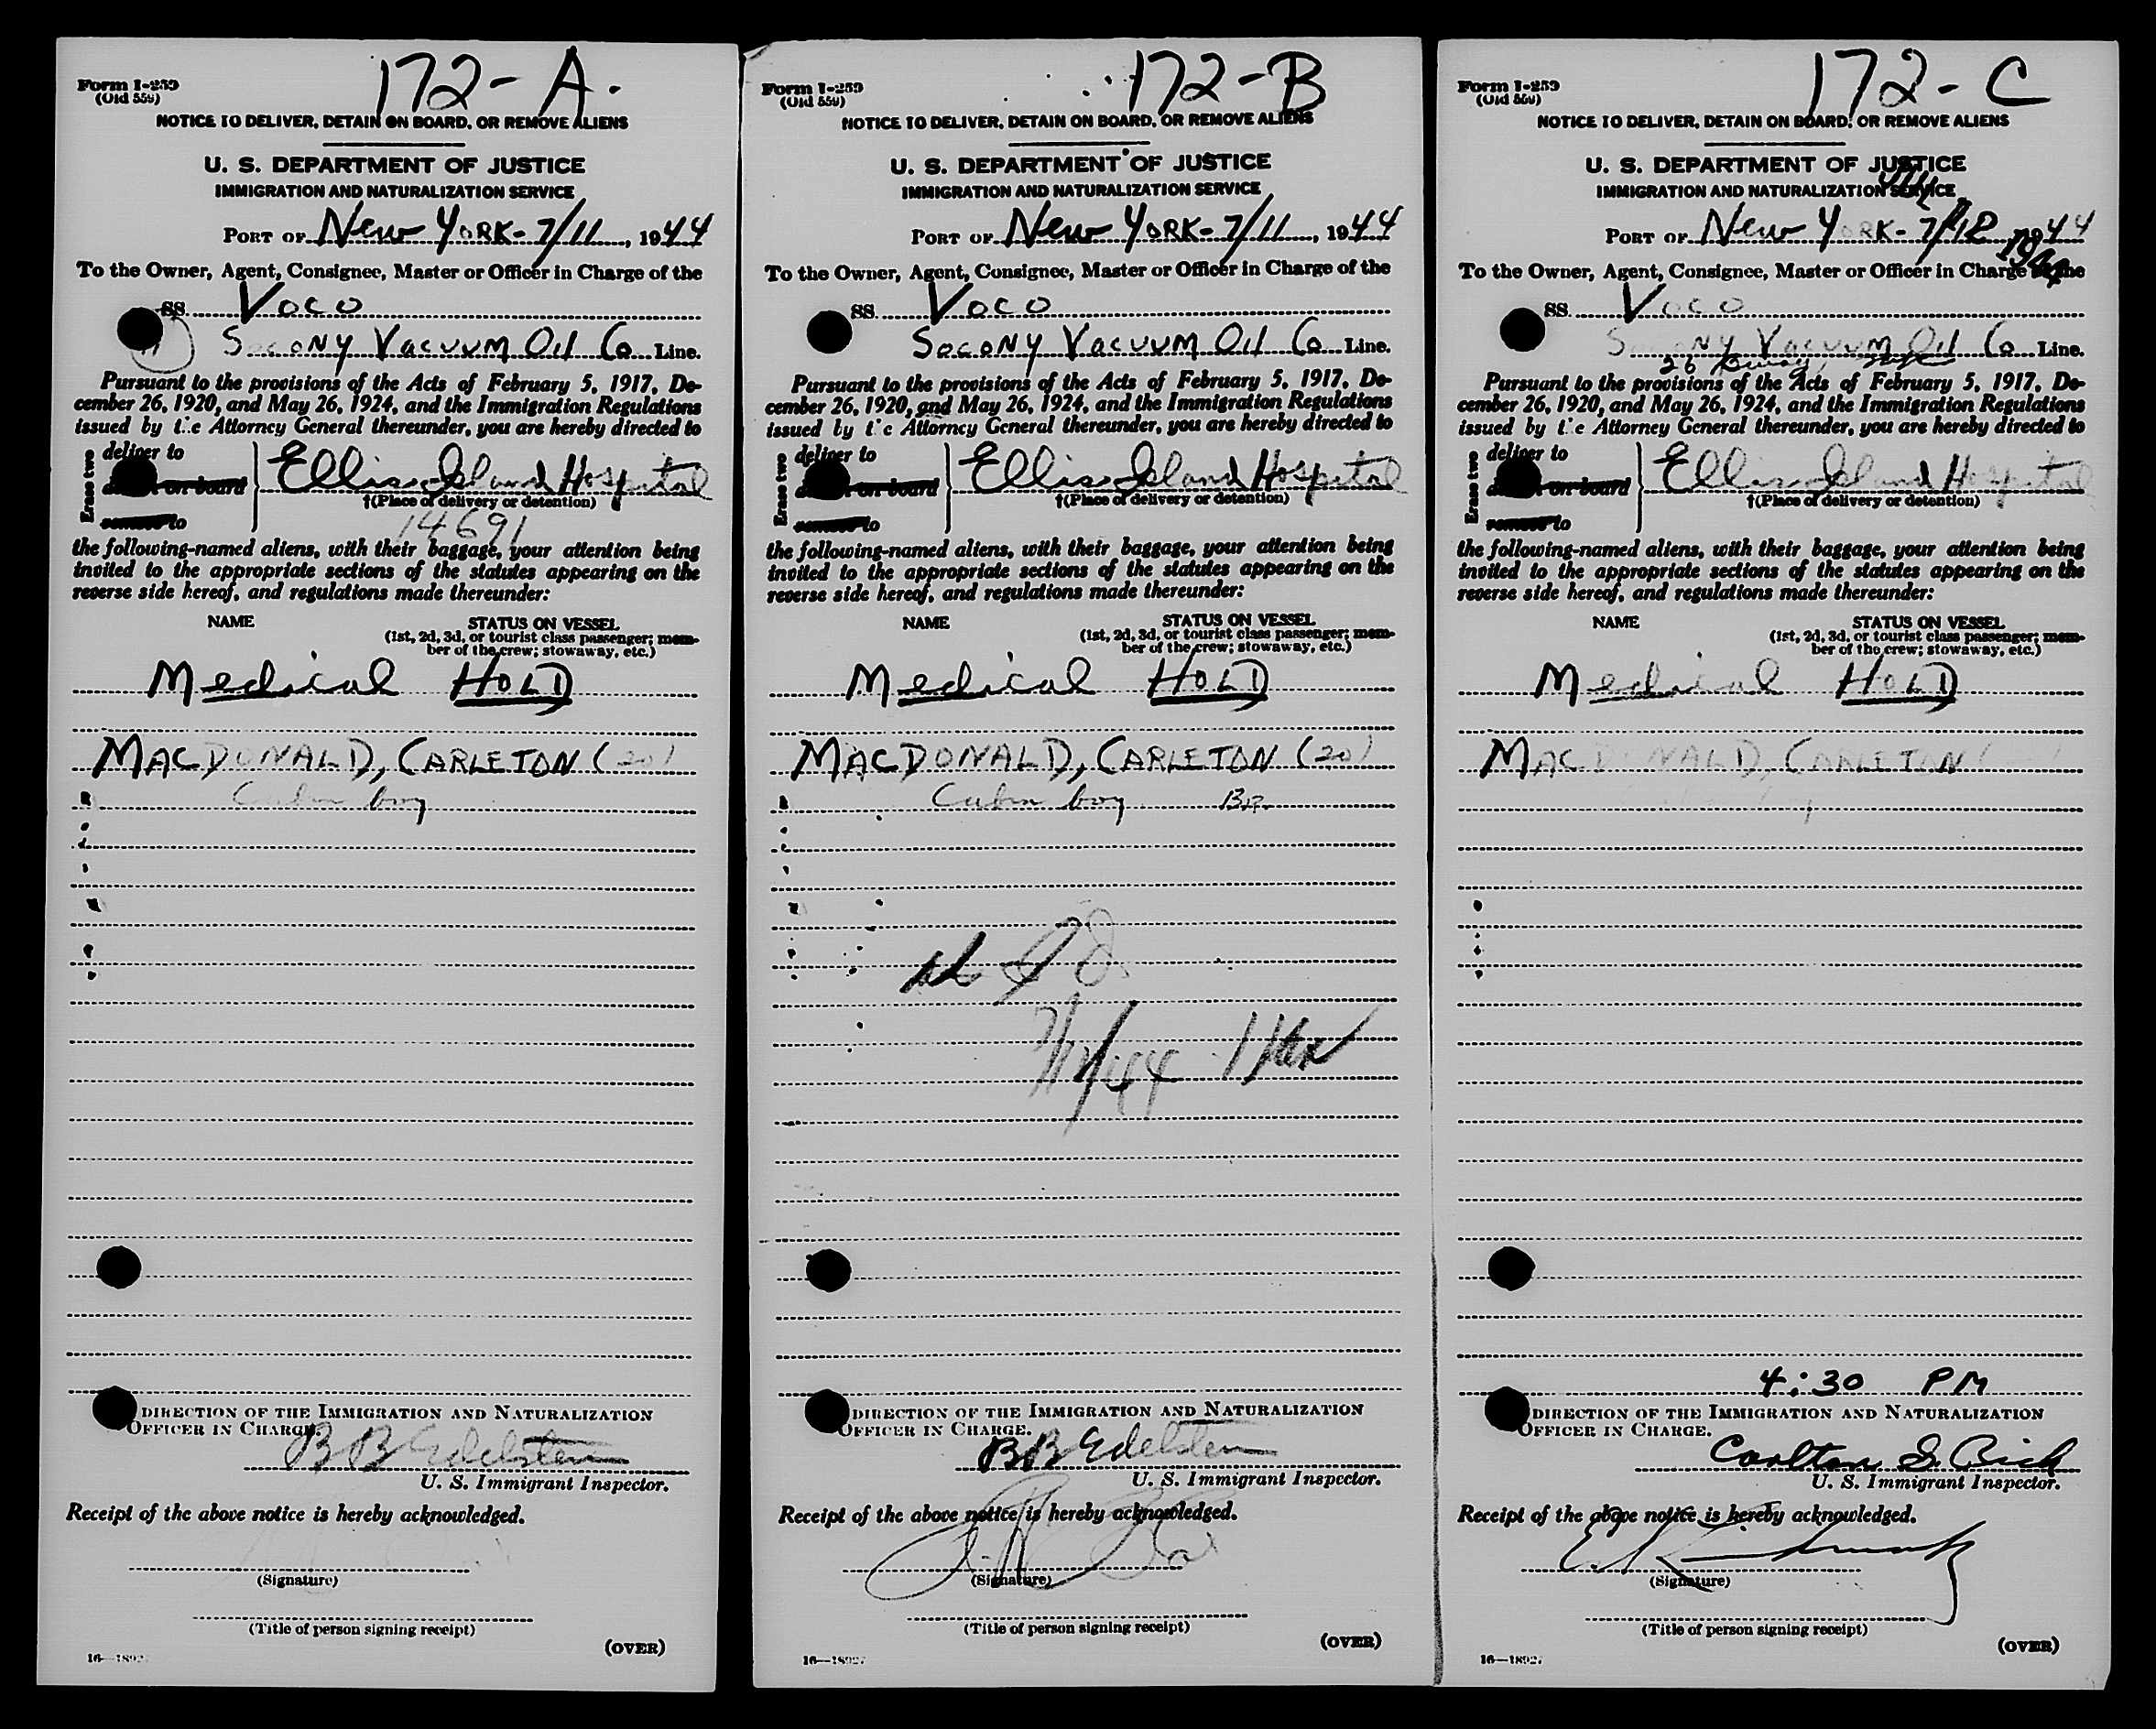 172-A.
Form I-259
(Old 559)
NOTICE TO DELIVER, DETAIN ON BOARD, OR REMOVE ALIENS
U. S. DEPARTMENT OF JUSTICE
IMMIGRATION AND NATURALIZATION SERVICE
PORT OF New YORK - 7/11, 1944
To the Owner, Agent, Consignee, Master or Officer in Charge of the
SS. Voco
Socony Vacuum Oil Co Line.
Pursuant to the provisions of the Acts of February 5, 1917, De-
cember 26, 1920, and May 26, 1924, and the Immigration Regulations
issued by the Attorney General thereunder, you are hereby directed to
Erase two
deliver to
on board
remove to
Ellis Island Hospital
†(Place of delivery or detention)
14691
the following-named aliens, with their baggage, your attention being
invited to the appropriate sections of the statutes appearing on the
reverse side hereof, and regulations made thereunder:
NAME
STATUS ON VESSEL
(1st, 2d, 3d, or tourist class passenger; mem-
ber of the crew; stowaway, etc.)
Medical HOLD
MACDONALD, CARLETON (20)
Cabin boy
DIRECTION OF THE IMMIGRATION AND NATURALIZATION
OFFICER IN CHARGE.
B B Edelstein
U. S. Immigrant Inspector.
Receipt of the above notice is hereby acknowledged.
(Signature)
(Title of person signing receipt)
(OVER)
172-B
Form I-259
(Old 559)
NOTICE TO DELIVER, DETAIN ON BOARD, OR REMOVE ALIENS
U. S. DEPARTMENT OF JUSTICE
IMMIGRATION AND NATURALIZATION SERVICE
PORT OF New YORK - 7/11, 1944
To the Owner, Agent, Consignee, Master or Officer in Charge of the
SS. Voco
Socony Vacuum Oil Co Line.
Pursuant to the provisions of the Acts of February 5, 1917, De-
cember 26, 1920, and May 26, 1924, and the Immigration Regulations
issued by the Attorney General thereunder, you are hereby directed to
Erase two
deliver to
on board
remove to
Ellis Island Hospital
†(Place of delivery or detention)
the following-named aliens, with their baggage, your attention being
invited to the appropriate sections of the statutes appearing on the
reverse side hereof, and regulations made thereunder:
NAME
STATUS ON VESSEL
(1st, 2d, 3d, or tourist class passenger; mem-
ber of the crew; stowaway, etc.)
Medical HOLD
MACDONALD, CARLETON (20)
Cabin boy Br.
DIRECTION OF THE IMMIGRATION AND NATURALIZATION
OFFICER IN CHARGE.
B B Edelstein
U. S. Immigrant Inspector.
Receipt of the above notice is hereby acknowledged.
(Signature)
(Title of person signing receipt)
(OVER)
16—18927
172-C
Form I-259
(Old 559)
NOTICE TO DELIVER, DETAIN ON BOARD, OR REMOVE ALIENS
U. S. DEPARTMENT OF JUSTICE
IMMIGRATION AND NATURALIZATION SERVICE
PORT OF New YORK - 7/12 1944
To the Owner, Agent, Consignee, Master or Officer in Charge of the
SS. Voco
Socony Vacuum Oil Co Line.
26
Pursuant to the provisions of the Acts of February 5, 1917, De-
cember 26, 1920, and May 26, 1924, and the Immigration Regulations
issued by the Attorney General thereunder, you are hereby directed to
Erase two
deliver to
on board
remove to
Ellis Island Hospital
†(Place of delivery or detention)
the following-named aliens, with their baggage, your attention being
invited to the appropriate sections of the statutes appearing on the
reverse side hereof, and regulations made thereunder:
NAME
STATUS ON VESSEL
(1st, 2d, 3d, or tourist class passenger; mem-
ber of the crew; stowaway, etc.)
Medical HOLD
MACDONALD, CARLETON
4:30 PM
DIRECTION OF THE IMMIGRATION AND NATURALIZATION
OFFICER IN CHARGE.
Carlton S. Rich
U. S. Immigrant Inspector.
Receipt of the above notice is hereby acknowledged.
(Signature)
(Title of person signing receipt)
(OVER)
16—18927